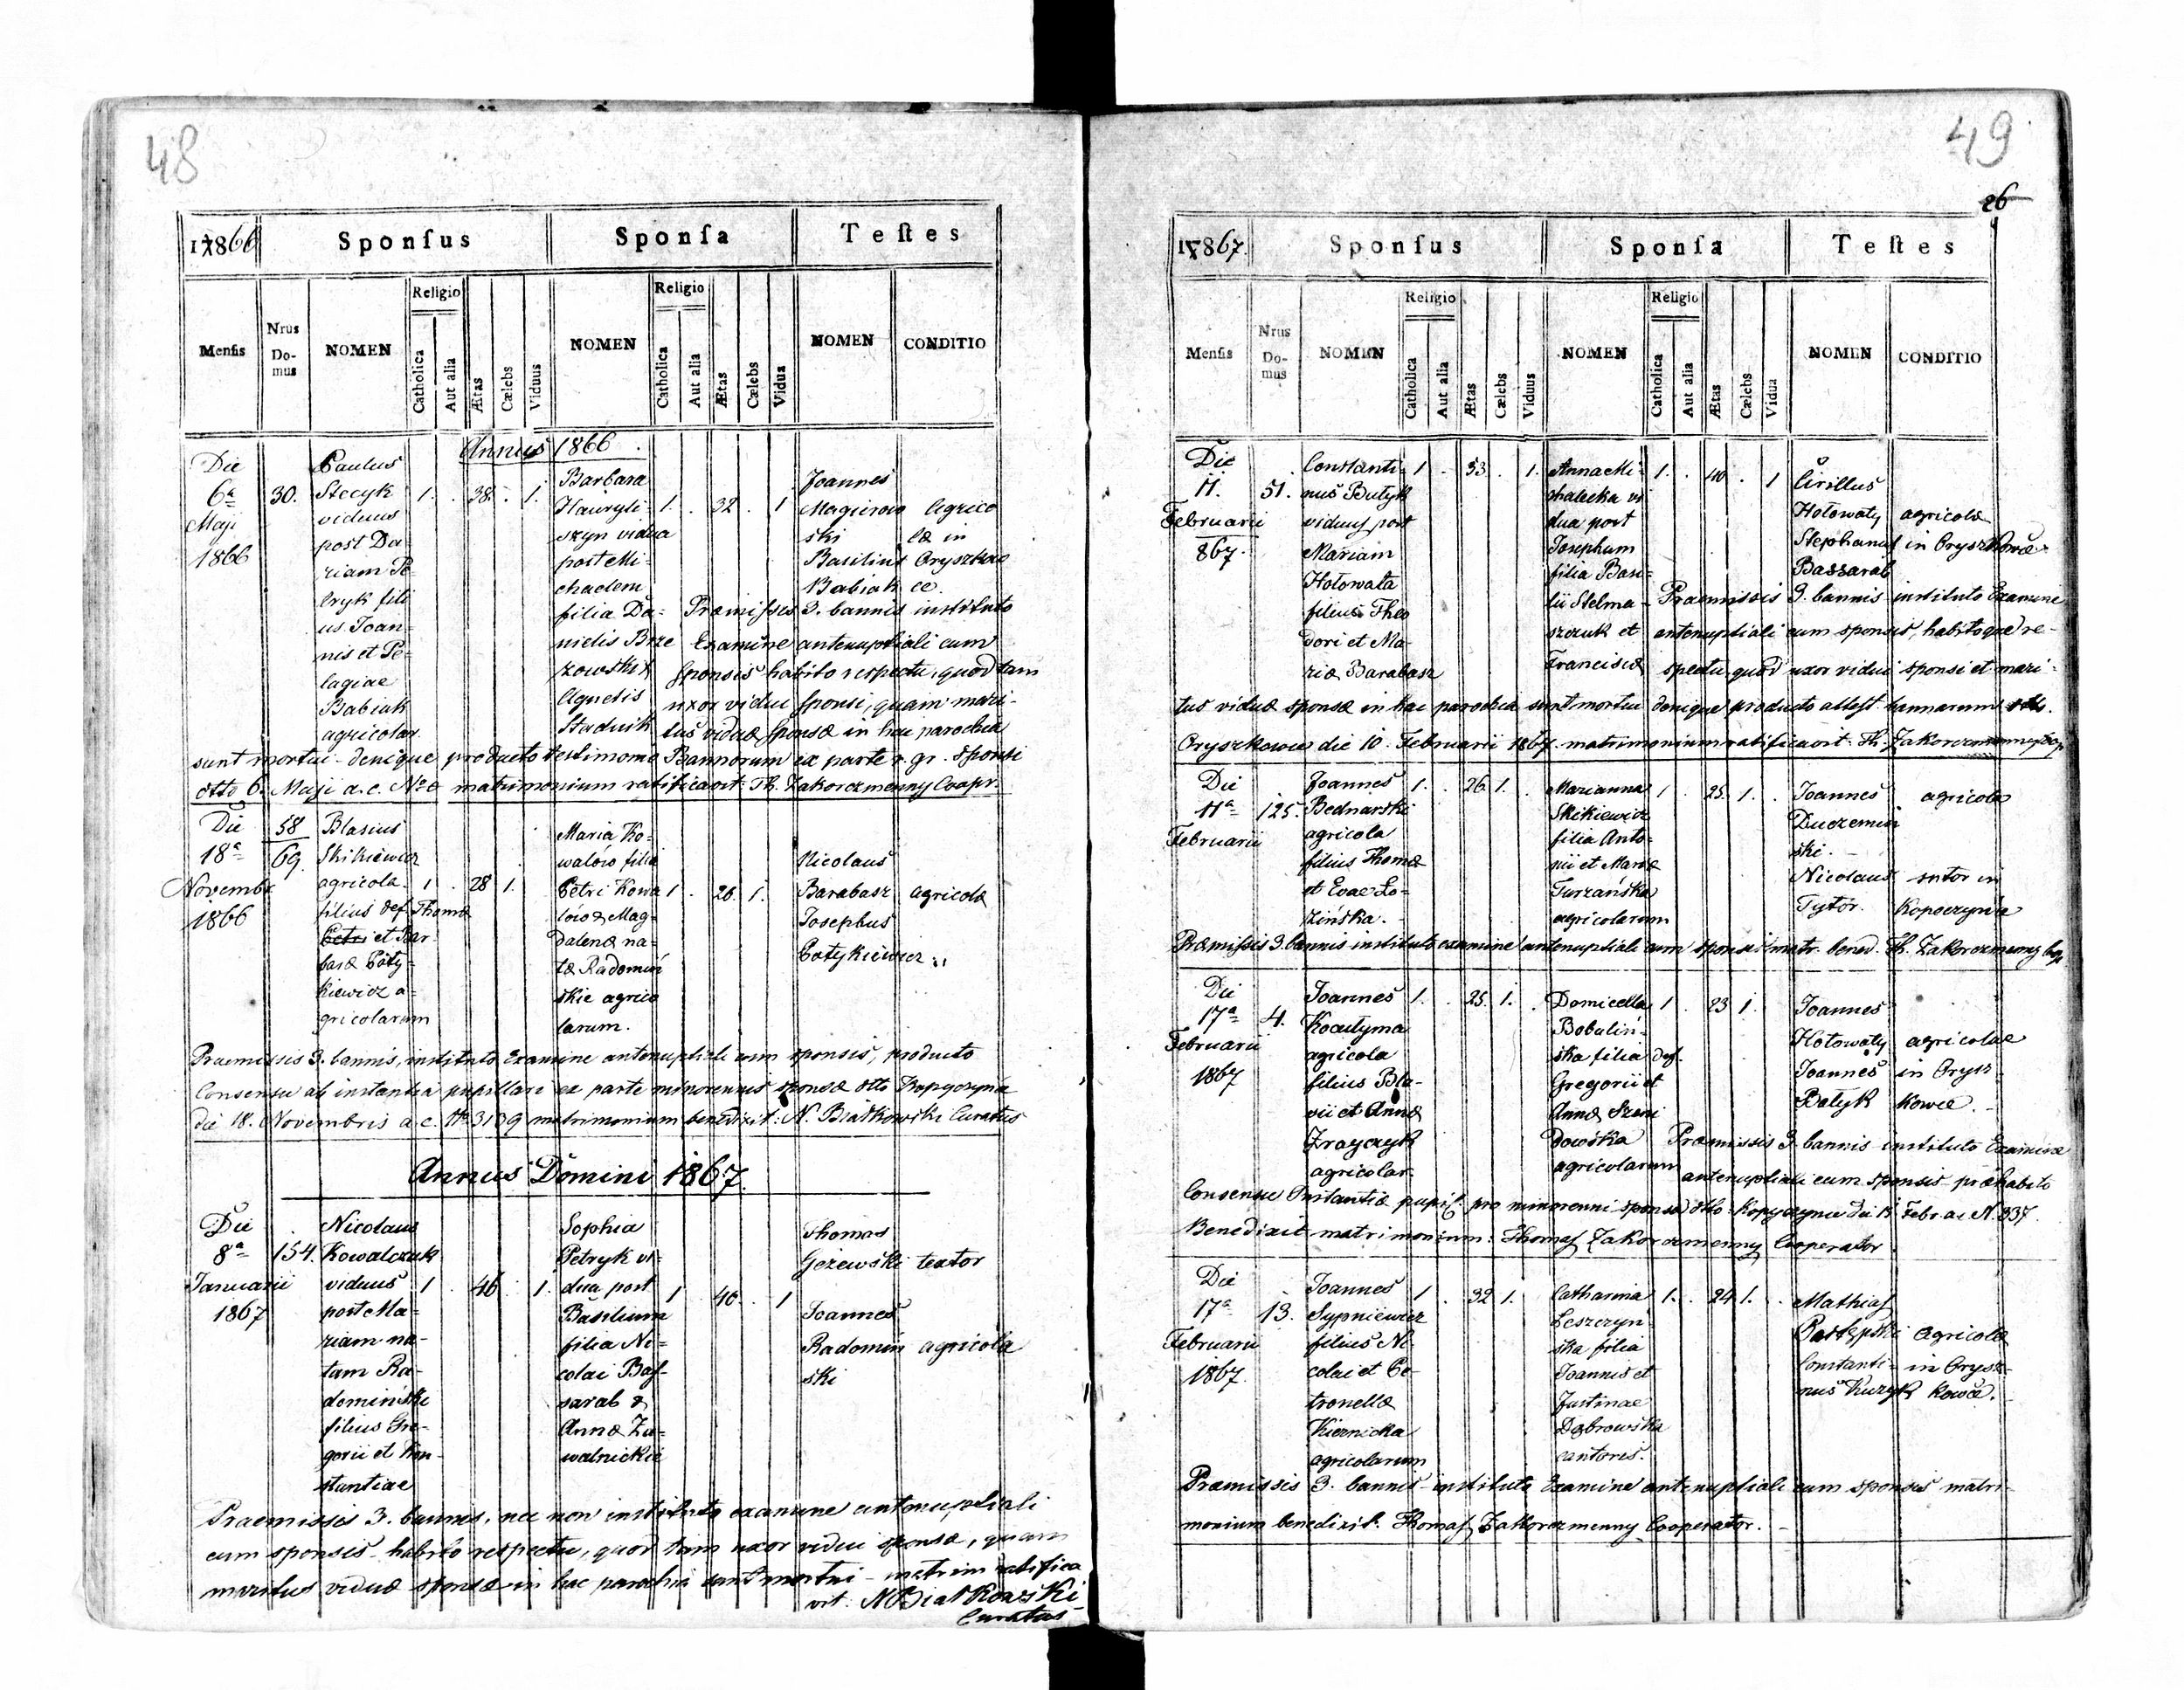 48
1866
Sponsus
Sponsa
Testes
Mensis
Nrus Domus
NOMEN
Religio
Catholica
Aut alia
Ætas
Cælebs
Viduus
NOMEN
Religio
Catholica
Aut alia
Ætas
Cælebs
Vidua
NOMEN
CONDITIO
Annus 1866.
Die
6a
Maji
1866
30.
Paulus
Stecyk
viduus
post Da-
riam Pe
tryk fili
us Joan-
nis et Pe-
lagiae
Babiuk
agricolar.
1. . 38. . 1.
Barbara
Hawryli-
szyn vidua
post Mi-
chaelem
filia Da-
nielis Brze
zowski &
Agnetis
Stadnik
1. . 32 . 1
Joannes
Magierow
ski
Basilius
Babiak
Agrico
læ in
Oryszkow
ce.
Præmissis 3. bannis instituto
Examine antenuptiali cum
sponsis habito respectu, quod tam
uxor vidui sponsi, quam mari-
tus viduæ sponsæ in hac parochia
sunt mortui - denique producto testimonio Bannorum ex parte r. gr. sponsi
dtto 6. Maji a.c. No matrimonium ratificavit: Th. Zakorczmenny Coopr.
Die
18a
Novembr
1866
58
69.
Blasius
Skikiewicz
agricola.
filius def. Thomæ
Petri et Bar
baræ Poty-
kiewicz a-
gricolarum
1 . 28 1.
Maria Ko-
walów filia
Petri Kowa
lów & Mag-
dalenæ na-
tæ Radomiń
skie agrico
larum.
1 . 20. 1.
Nicolaus
Barabasz
Josephus
Potykiewicz
agricolæ
Praemissis 3. bannis, instituto Examine antenuptiali cum sponsis, producto
Consensu ab instantia pupillari ex parte minorennis sponsæ dtto Kopyczyńce
die 18. Novembris a.c. No 3139 matrimonium benedixit: N. Białkowski Curatus
Annus Domini 1867.
Die
8a
Januarii
1867
154.
Nicolaus
Kowalczuk
viduus
post Ma-
riam na-
tam Ra-
domińske
filius Gre-
gorii et Kon-
stantiae
1 . 46 . 1.
Sophia
Petryk vi-
dua post
Basilium
filia Ni-
colai Bas-
sarab &
Annæ Za-
walnickie
1 . 40. . 1
Thomas
Geżewski
Joannes
Radomiń
ski
textor
agricola
Praemissis 3. bannis, nec non instituto examine antenuptiali
cum sponsis - habito respectu, quod tam uxor vidui sponsæ, quam
maritus viduæ sponsæ in hac parochia sunt mortui - matrim ratifica
vit. N Białkowski
Curatus
49
26
1867.
Sponsus
Sponsa
Testes
Mensis
Nrus Domus
NOMEN
Religio
Catholica
Aut alia
Ætas
Cælebs
Viduus
NOMEN
Religio
Catholica
Aut alia
Ætas
Cælebs
Vidua
NOMEN
CONDITIO
Die
11.
Februarii
867.
51.
Constanti-
nus Butyk
viduus post
Mariam
Hołowata
filius Theo
dori et Ma-
riæ Barabasz
1 . 53 . 1.
Anna Mi-
chalecka vi
dua post
Josephum
filia Basi-
lii Stelma-
szczuk et
Franciscæ
1. . 40 . 1
Cirillus
Hołowaty
Stephanus
Bassarab
agricolæ
in Oryszkowce.
Praemissis 3. bannis instituto Examine
antenuptiali cum sponsis, habitoque re-
spectu, quod uxor vidui sponsi et mari-
tus viduæ sponsæ in hac parochia sunt mortui denique producto attest. bannorum dtto.
Oryszkowce die 10. Februarii 1867. matrimonium ratificavit. Th. Zakorczmenny Coop
Die
11a
Februarii
125.
Joannes
Bednarski
agricola
filius Thomæ
et Evae Ło-
zińska.
1. . 26. 1.
Marianna
Skikiewicz
filia Anto-
nii et Mariæ
Turzańska
agricolarum
1 . 25. 1. .
Joannes
Duczemiń
ski.
Nicolaus
Tytór.
agricola
sutor in
Kopeczyńce
Præmissis 3. bannis instituto examine antenuptiali cum sponsis matr. bened. Th. Zakorczmenny Coop.
Die
17a
Februarii
1867
4.
Joannes
Koczutyma
agricola
filius Bla-
sii et Annæ
Zrayczyk
agricolar.
1. . 25. 1.
Domicella
Bobuliń-
ska filia def.
Gregorii et
Annæ Szeni
dowska
agricolarum
1 . 23 1.
Joannes
Hołowaty
Joannes
Batyk
agricolae
in Orysz
kowce.
Præmissis 3. bannis instituto Examine
antenuptiali cum sponsis præhabito
Consensu Instantiæ pupil. pro minorenni sponsa dtto Kopyczyńce die 15 Febr. a.c. N. 337.
Benedixit matrimonium: Thomas Zakorczmenny Cooperator
Die
17a
Februarii
1867.
13.
Joannes
Sypniewicz
filius Ni-
colai et Pe-
tronellæ
Kiernicka
agricolarum
1 . 32 1.
Catharina
Leszczyń
ska filia
Joannis et
Justinae
Dąbrowska
cantoris.
1. . 24 1. .
Mathias
Postępski
Constanti-
nus Kuzyk
agricolæ
in Orysz-
kowce.
Præmissis 3. bannis instituto Examine antenuptiali cum sponsis matri-
monium benedixit. Thomas Zakorczmenny Cooperator.